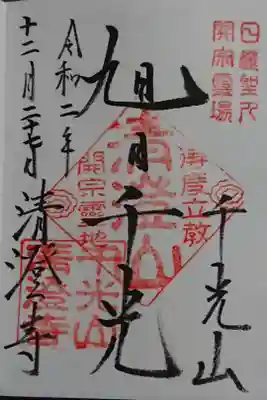 日蓮聖人
開宗霊場
千光山
旭日千光
清澄山
立教
開宗霊地
千光山
清澄寺
令和二年
十二月二十日
清澄寺